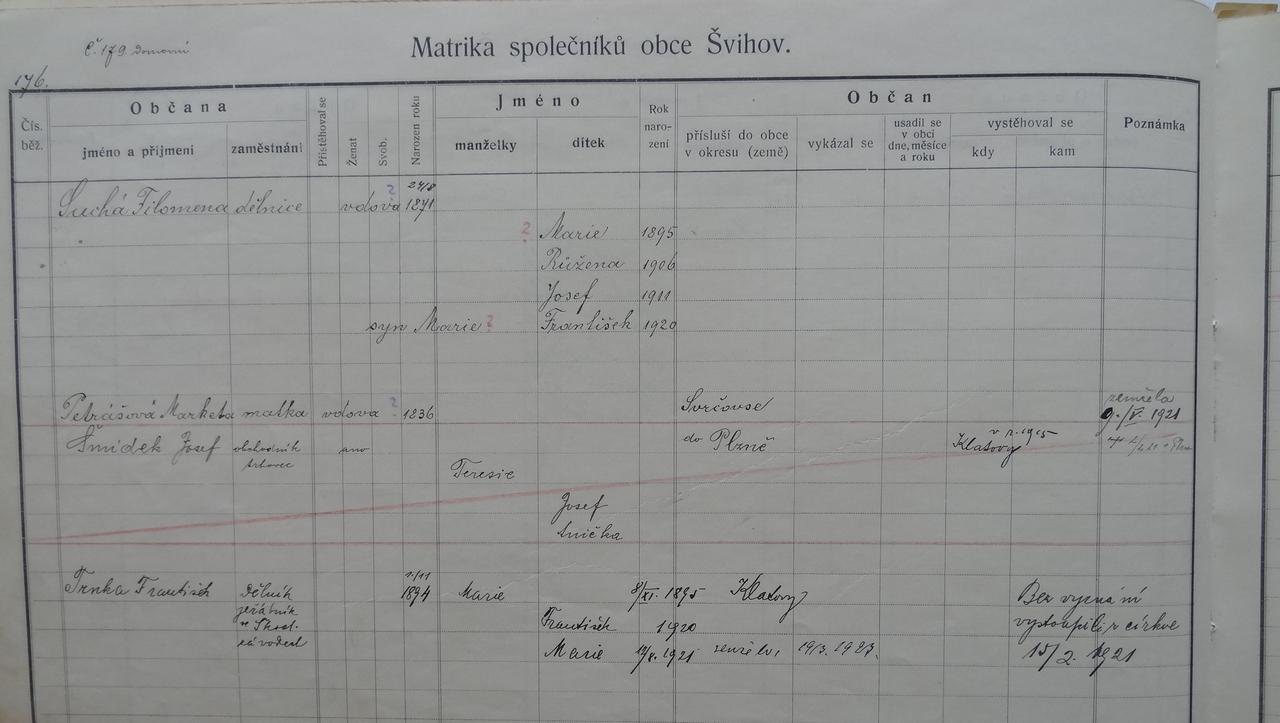 Č 179 domovní
Matrika společníků obce Švihov.
176.
Čís. běž.
Občana
jméno a příjmení
zaměstnání
Přistěhoval se
Ženat
Svob.
Narozen roku
Jméno
manželky
dítek
Rok naro- zení
Občan
přísluší do obce v okresu (země)
vykázal se
usadil se v obci dne, měsíce a roku
vystěhoval se
kdy
kam
Poznámka
24/8
Suchá Filomena dělnice vdova ? 1871
? Marie 1895
Růžena 1906
Josef 1911
syn Marie ? František 1920
Petrášová Marketa matka vdova ? 1836 Svrčovse zemřela
9./V. 1921
Šmídek Josef obchodník ano do Plzně Klatovy v r. 1915
Teresie
Josef
Anička
1/11
Trnka František Dělník 1894 Marie 8/XI. 1895 Klatovy Bez vyznání
jeřábník František 1920 vystoupili z církve
závodech Marie 1921 zemř. 19/3. 1923. 15/2. 1921